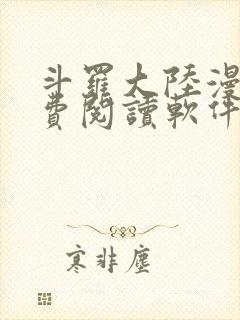 斗羅大陸漫
費閱讀軟件
寒非塵